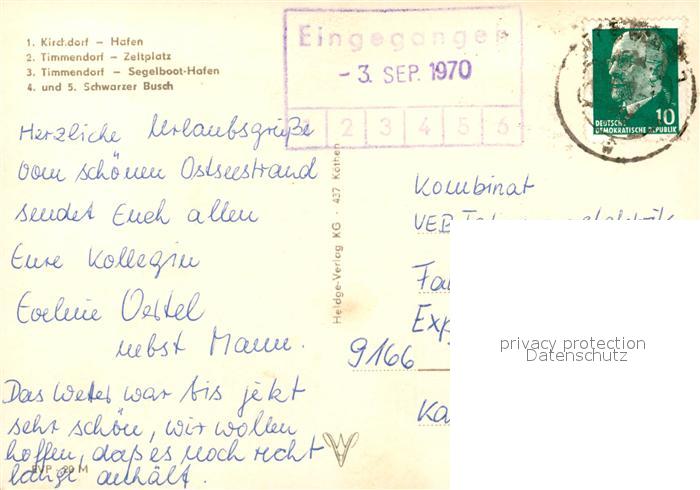 1. Kirchdorf – Hafen
2. Timmendorf – Zeltplatz
3. Timmendorf – Segelboot-Hafen
4. und 5. Schwarzer Busch
Eingegangen
- 3. SEP. 1970
1 2 3 4 5 6
10
DEUTSCHE
DEMOKRATISCHE REPUBLIK
Herzliche Urlaubsgrüße
vom schönen Ostseestrand
sendet Euch allen
Eure Kollegin
Eveline Oertel
nebst Mann.
Das Wetter war bis jetzt
sehr schön, wir wollen
hoffen, daß es noch recht
lange anhält.
EVP - 20 M
Heldge-Verlag KG · 437 Köthen
Kombinat
VEB
9166
privacy protection
Datenschutz